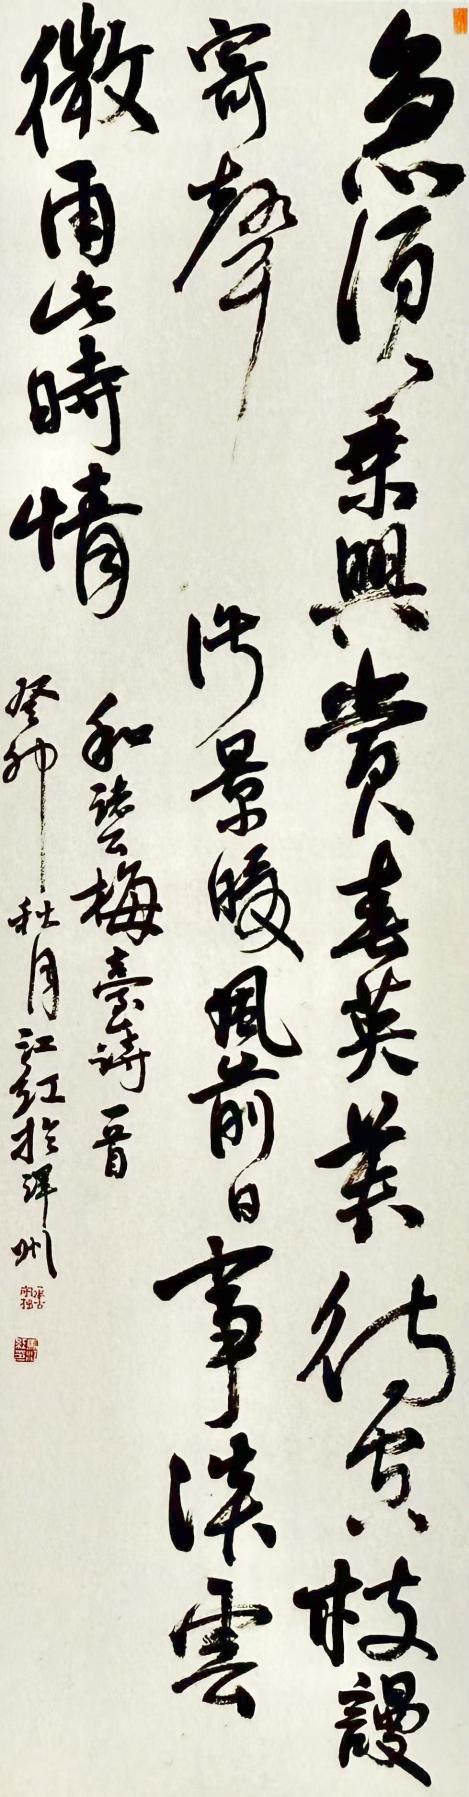 急須乘興賞春英莫待空枝謾
寄聲淑景暖風前日事淡雲
微雨此時情
和諸公梅臺詩一首
癸卯秋月江紅於州